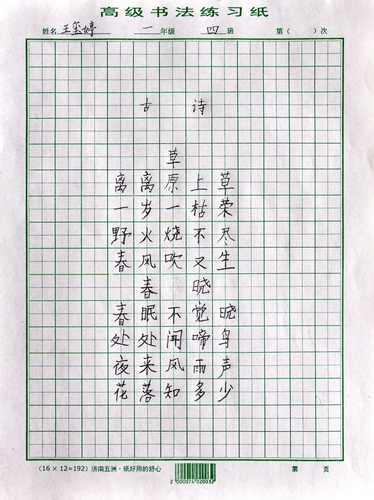 高级书法练习纸
姓名 王玺婷 一 年级 四 班 第( )次
古 诗
草
离离原上草
一岁一枯荣
野火烧不尽
春风吹又生
春 晓
春眠不觉晓
处处闻啼鸟
夜来风雨声
花落知多少
(16 × 12=192) 济南五洲·纸好用的舒心 第 页
2 500074 020032